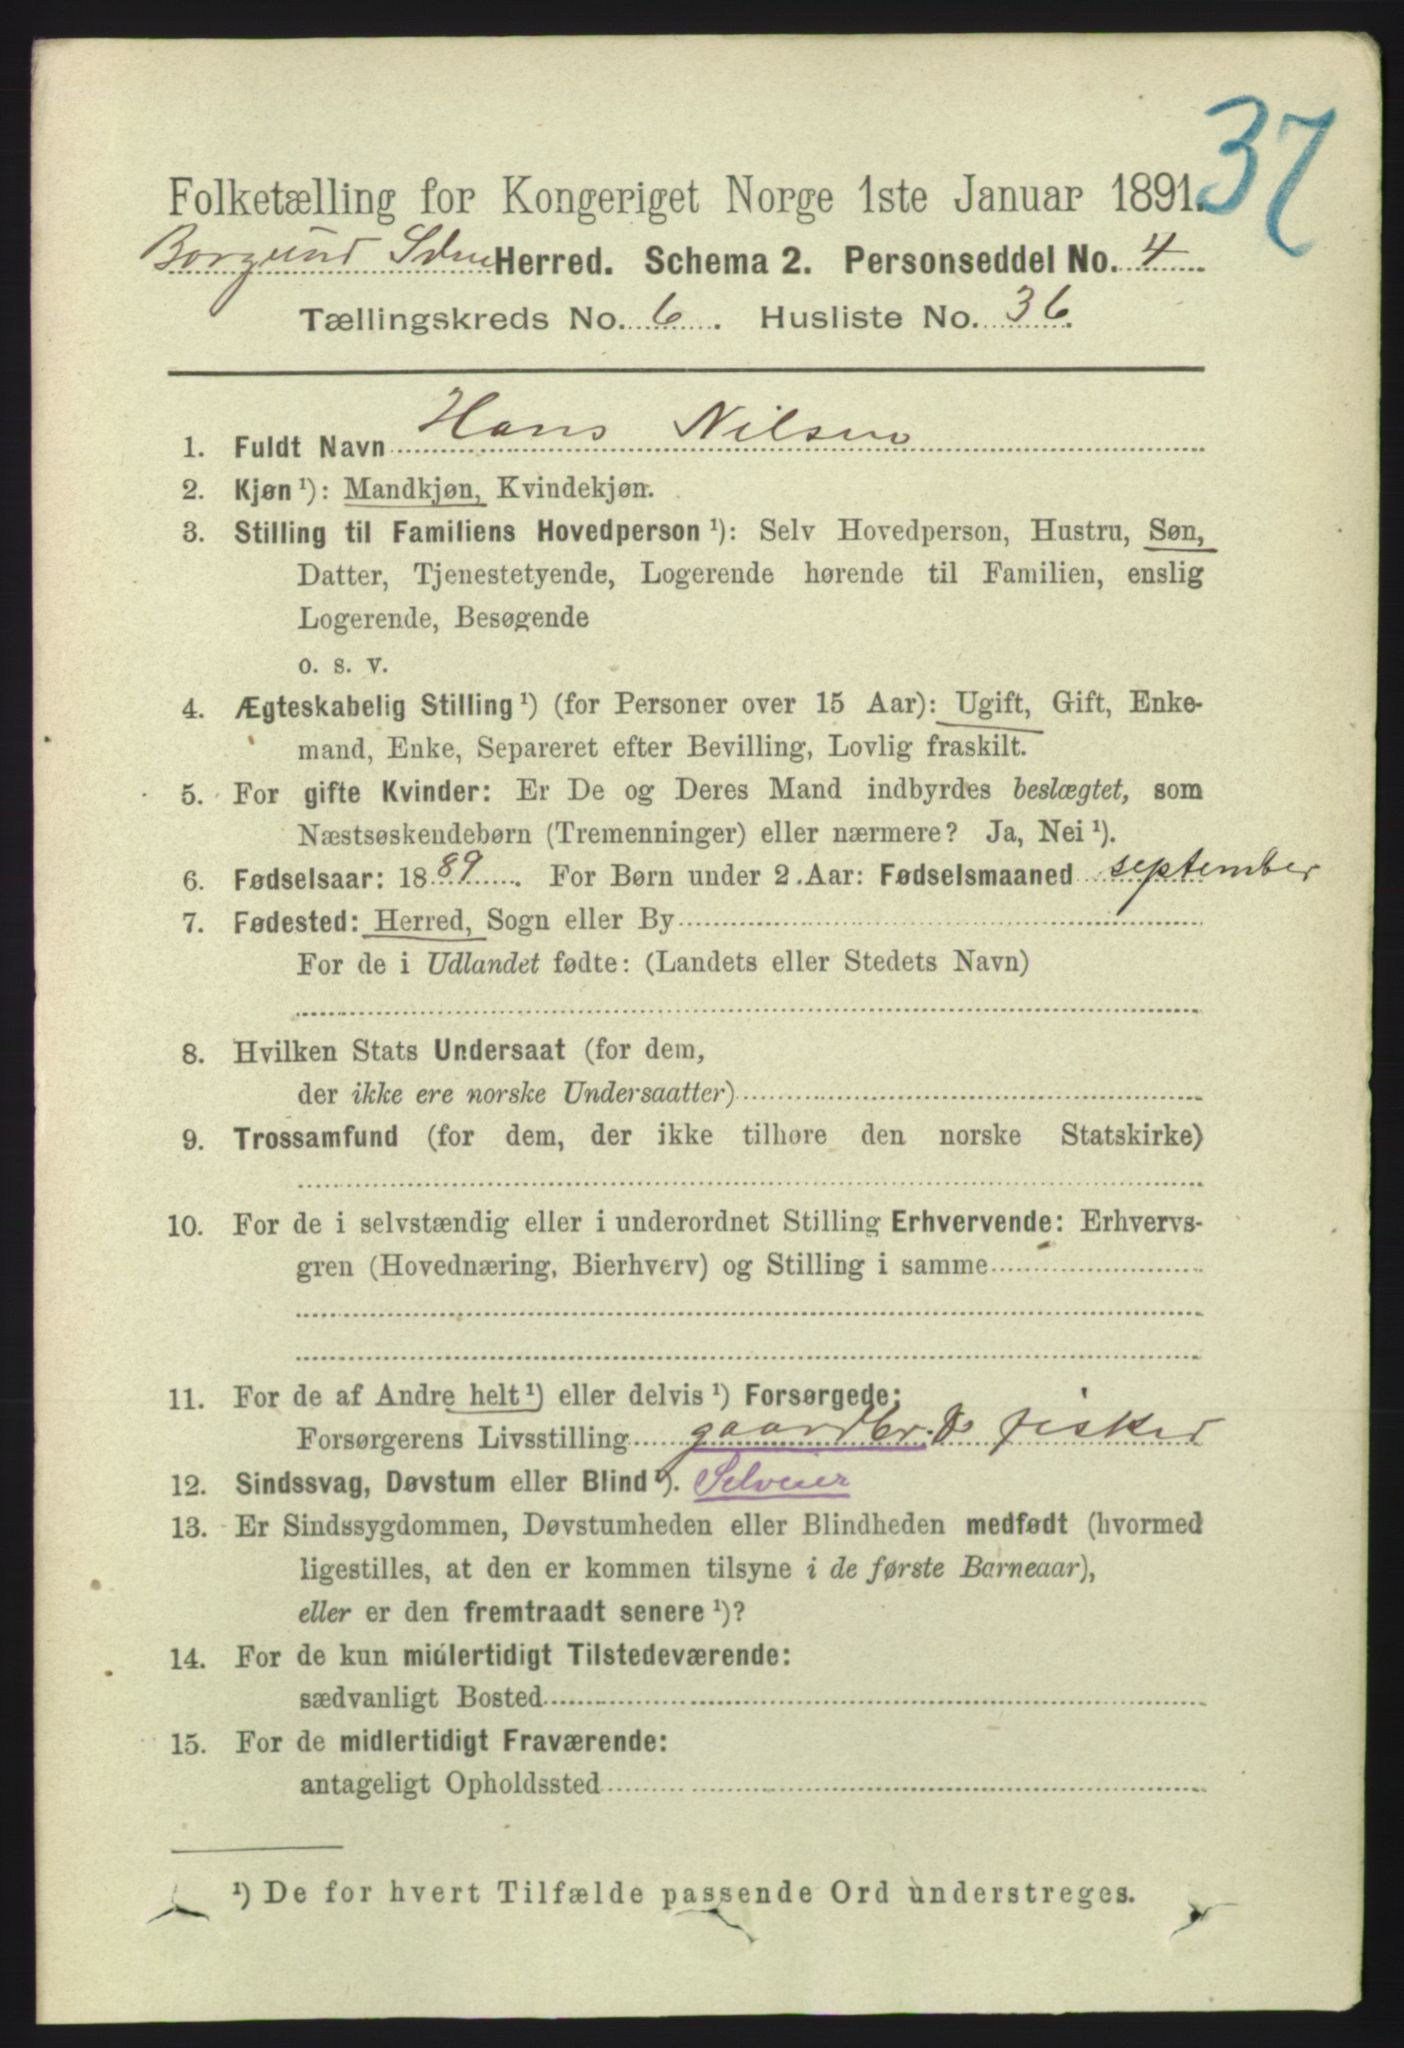 37
Folketælling for Kongeriget Norge 1ste Januar 1891.
Borgund Herred. Schema 2. Personseddel No. 4
Tællingskreds No. 6. Husliste No. 36.
1. Fuldt Navn Hans Nilsen
2. Kjøn ¹): Mandkjøn, Kvindekjøn.
3. Stilling til Familiens Hovedperson ¹): Selv Hovedperson, Hustru, Søn,
Datter, Tjenestetyende, Logerende hørende til Familien, enslig
Logerende, Besøgende
o. s. v.
4. Ægteskabelig Stilling ¹) (for Personer over 15 Aar): Ugift, Gift, Enke-
mand, Enke, Separeret efter Bevilling, Lovlig fraskilt.
5. For gifte Kvinder: Er De og Deres Mand indbyrdes beslægtet, som
Næstsøskendebørn (Tremenninger) eller nærmere? Ja, Nei ¹).
6. Fødselsaar: 1889. For Børn under 2 Aar: Fødselsmaaned september
7. Fødested: Herred, Sogn eller By
For de i Udlandet fødte: (Landets eller Stedets Navn)
8. Hvilken Stats Undersaat (for dem,
der ikke ere norske Undersaatter)
9. Trossamfund (for dem, der ikke tilhøre den norske Statskirke)
10. For de i selvstændig eller i underordnet Stilling Erhvervende: Erhvervs-
gren (Hovednæring, Bierhverv) og Stilling i samme
11. For de af Andre helt ¹) eller delvis ¹) Forsørgede:
Forsørgerens Livsstilling gaardbr. & fisker
12. Sindssvag, Døvstum eller Blind ¹). Selveier
13. Er Sindssygdommen, Døvstumheden eller Blindheden medfødt (hvormed
ligestilles, at den er kommen tilsyne i de første Barneaar),
eller er den fremtraadt senere ¹)?
14. For de kun midlertidigt Tilstedeværende:
sædvanligt Bosted
15. For de midlertidigt Fraværende:
antageligt Opholdssted
¹) De for hvert Tilfælde passende Ord understreges.